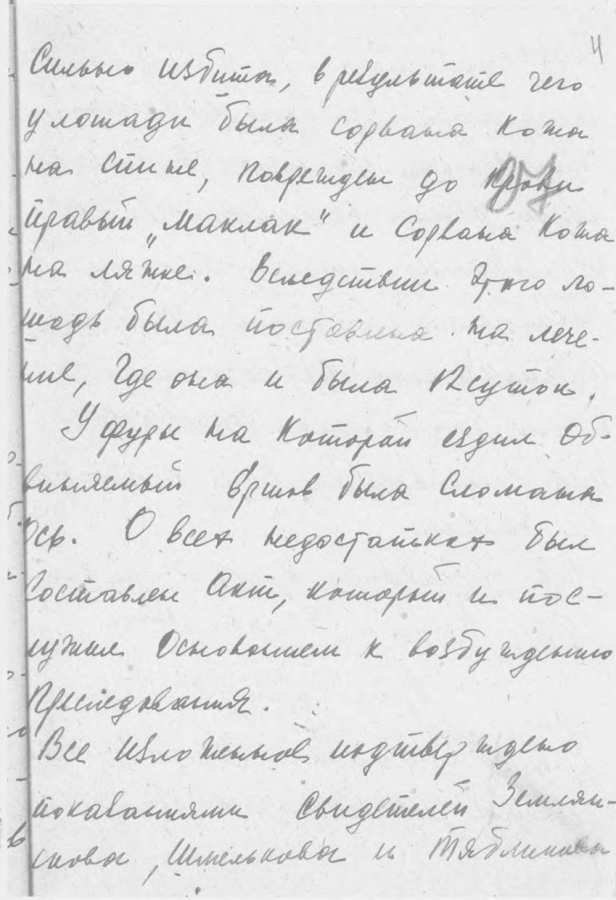 4
сильно избита, в результате чего
у лошади была сорвана кожа
на спине, поврежден до крови
37
правый „маклак" и сорвана кожа
на ляжке. Вследствии этого ло-
шадь была поставлена на лече-
ние, где она и была 12 суток.
У фуры на которой ездил об-
виняемый Ершов была сломана
ось. О всех недостатках был
составлен Акт, который и пос-
лужил основанием к возбуждению
преследования.
Все изложенное подтверждено
показаниями свидетелей Землян-
скова, Шмелькова и Тябликова